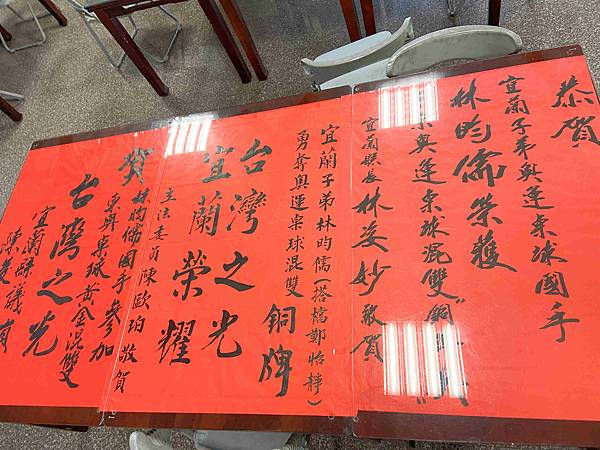 恭賀
宜蘭子弟奧運桌球國手
林昀儒榮獲
奧運桌球混雙"銅牌"
宜蘭縣長林姿妙敬賀
宜蘭子弟林昀儒(搭檔鄭怡靜)
勇奪奧運桌球混雙銅牌
台灣之光
宜蘭榮耀
立法委員陳歐珀敬賀
賀林昀儒國手參加
東奧桌球黃金混雙
台灣之光
宜蘭縣議員